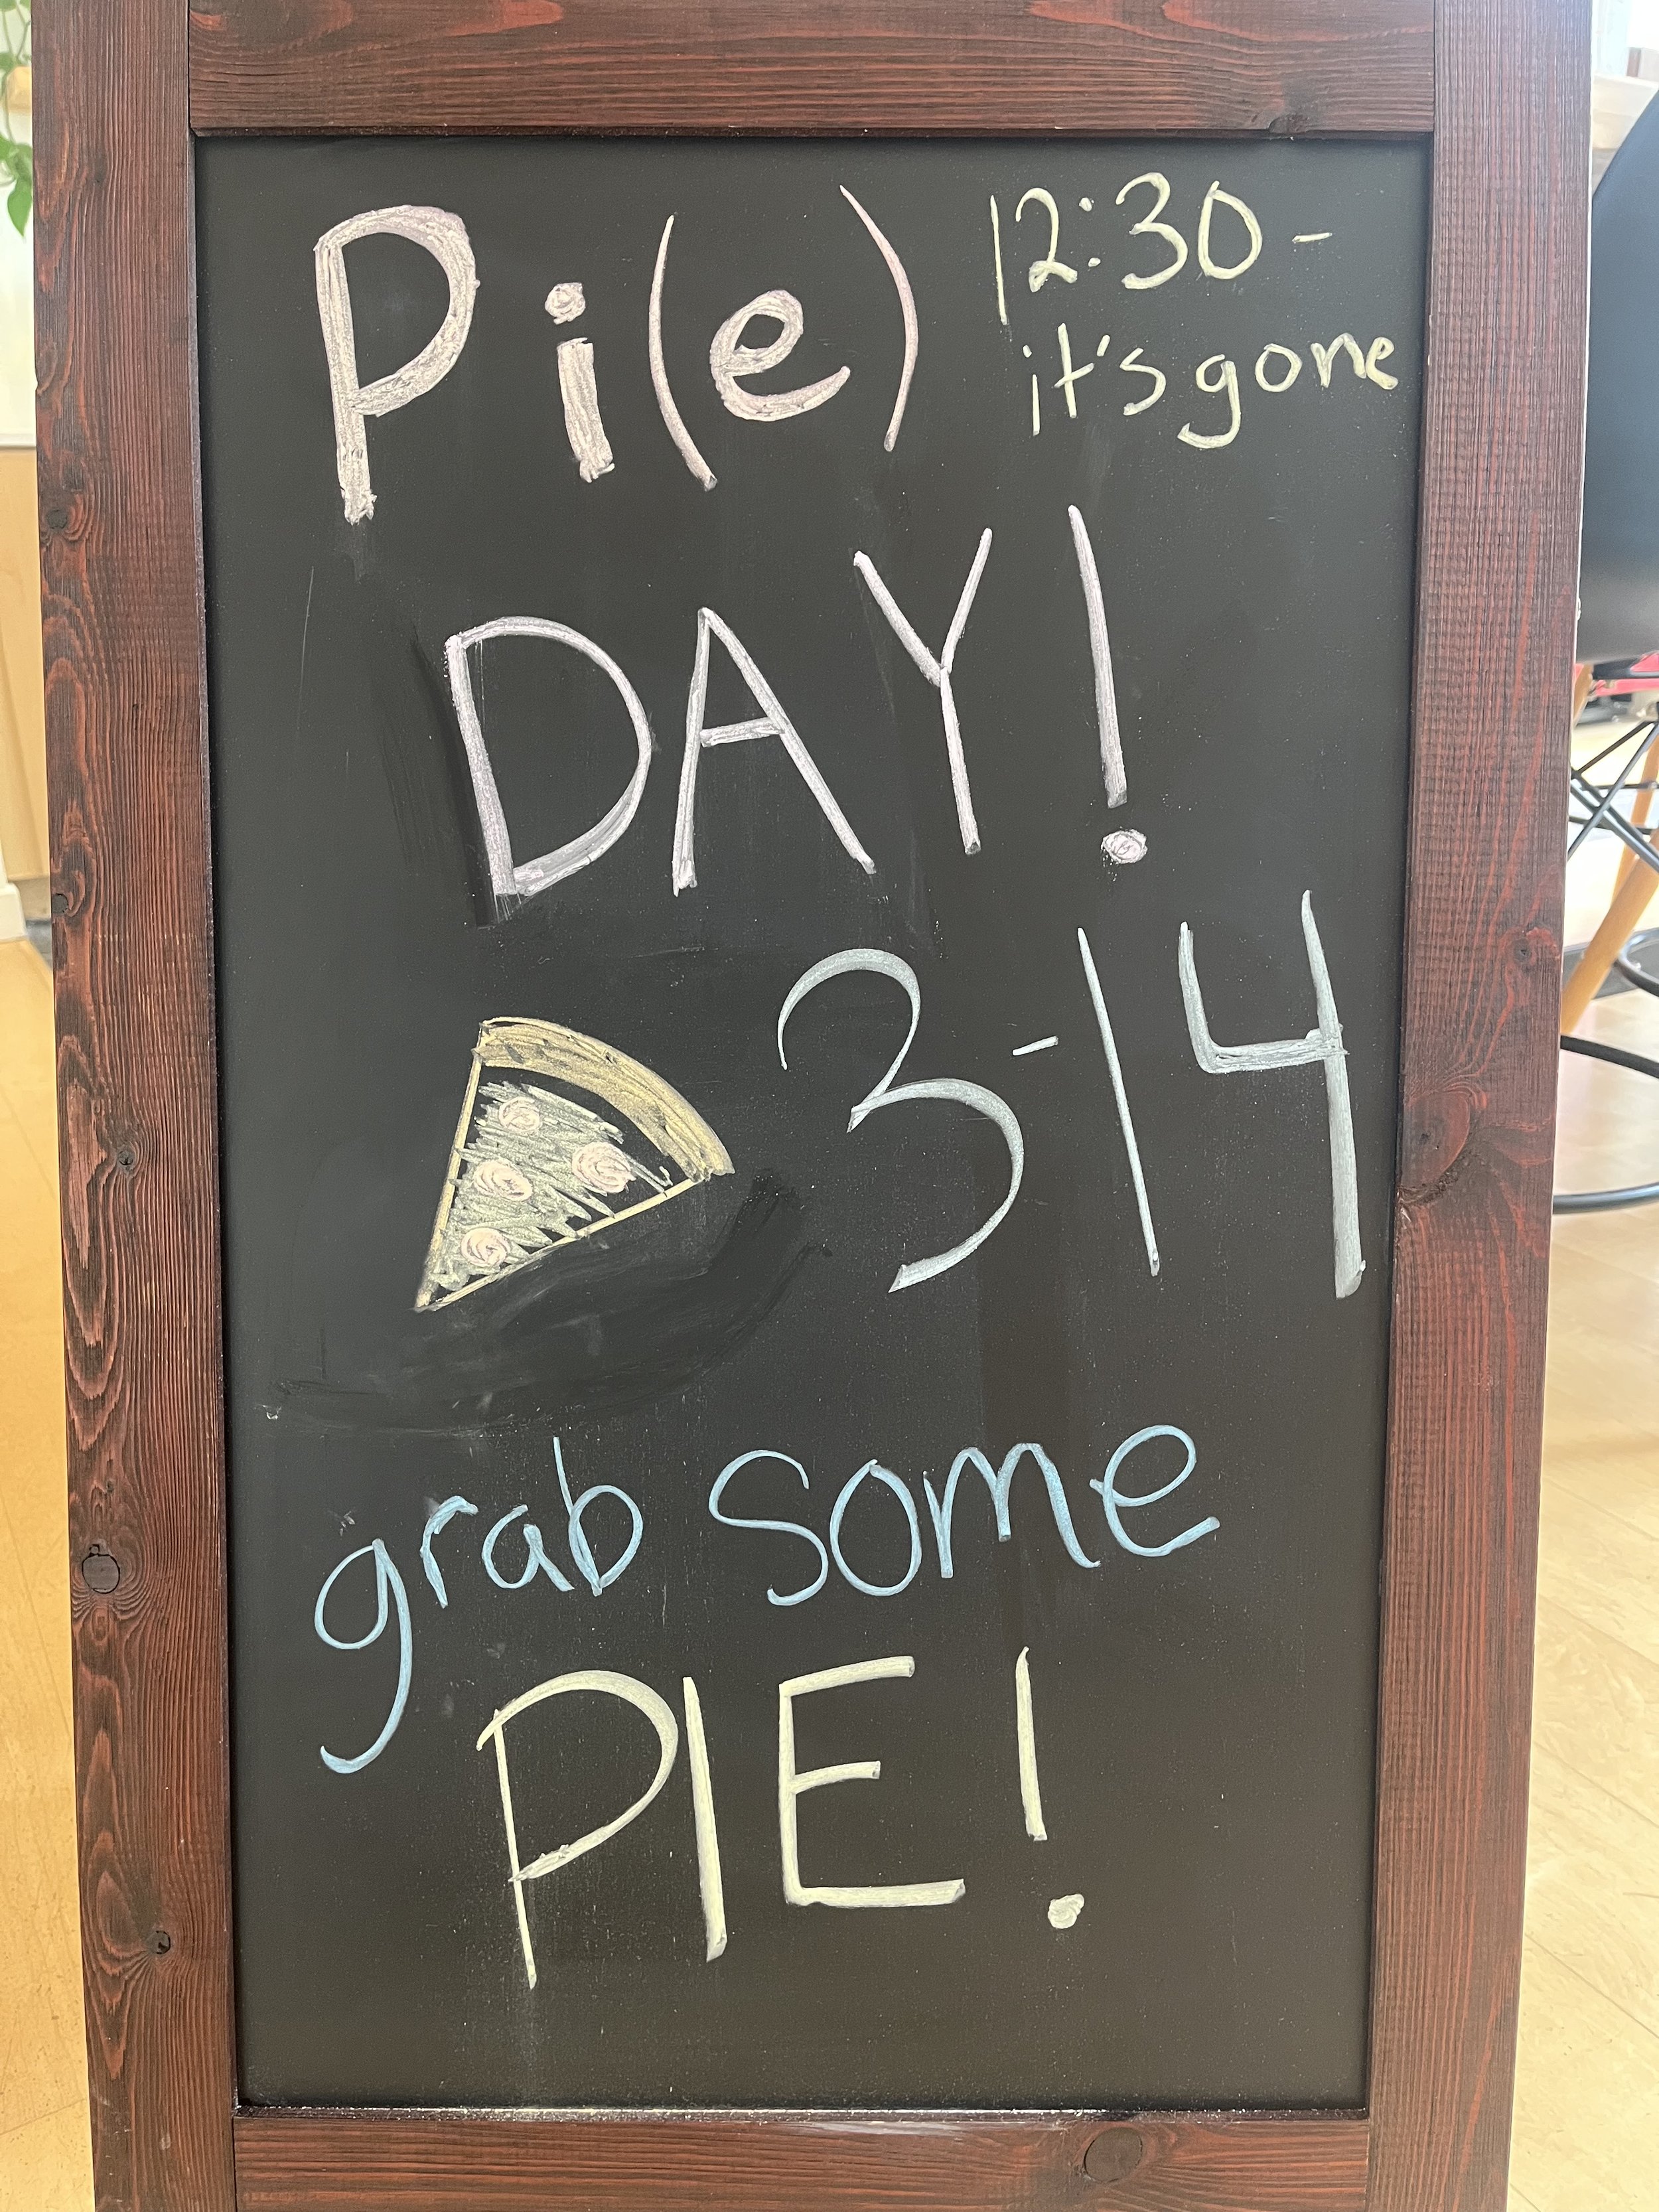 Pi(e)
12:30-
it's gone
DAY!
3-14
grab some
PIE!